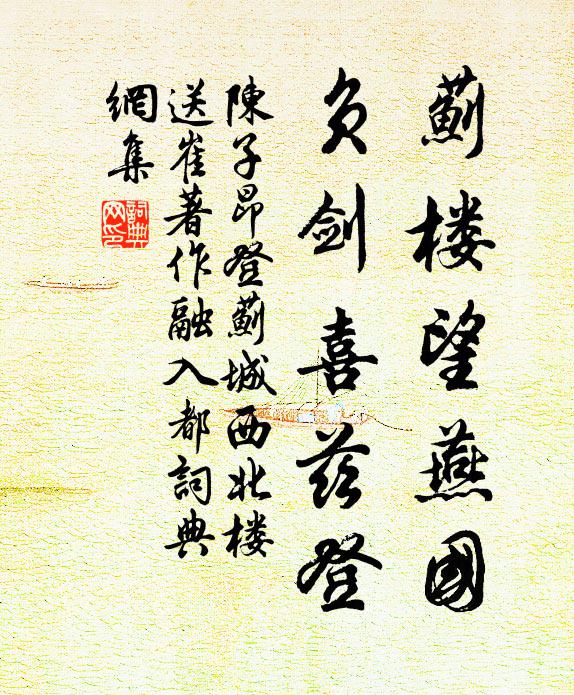 薊楼望燕國
负剑喜兹登
陳子昂登薊城西北楼
送崔著作融入都詞典
網集
詞典
网印